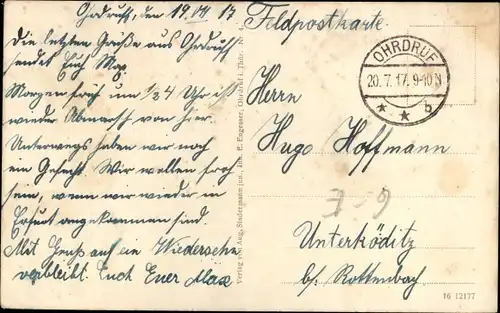 Ohrdruff, den 19.VII.17
Die letzten Grüße aus Ohrdruff
sendet Euch Max
Morgen früh um 1/2 4 Uhr ist
wieder Abmarsch von hier.
Unterwegs haben wir noch
ein Gefecht. Wir wollen froh
sein, wenn wir wieder in
Erfurt angekommen sind.
Mit Gruß auf ein Wiedersehn
verbleibt Euch Euer Max
Verlag von Aug. Studergmann jun., Inh. E. Engesser, Ohrdruf i. Thür. Nr. 4
Feldpostkarte
OHRDRUF
20.7.17. 9-10 N
* * b
Herrn
Hugo Hoffmann
7-9
Unterköditz
b/. Rottenbach
16 12177